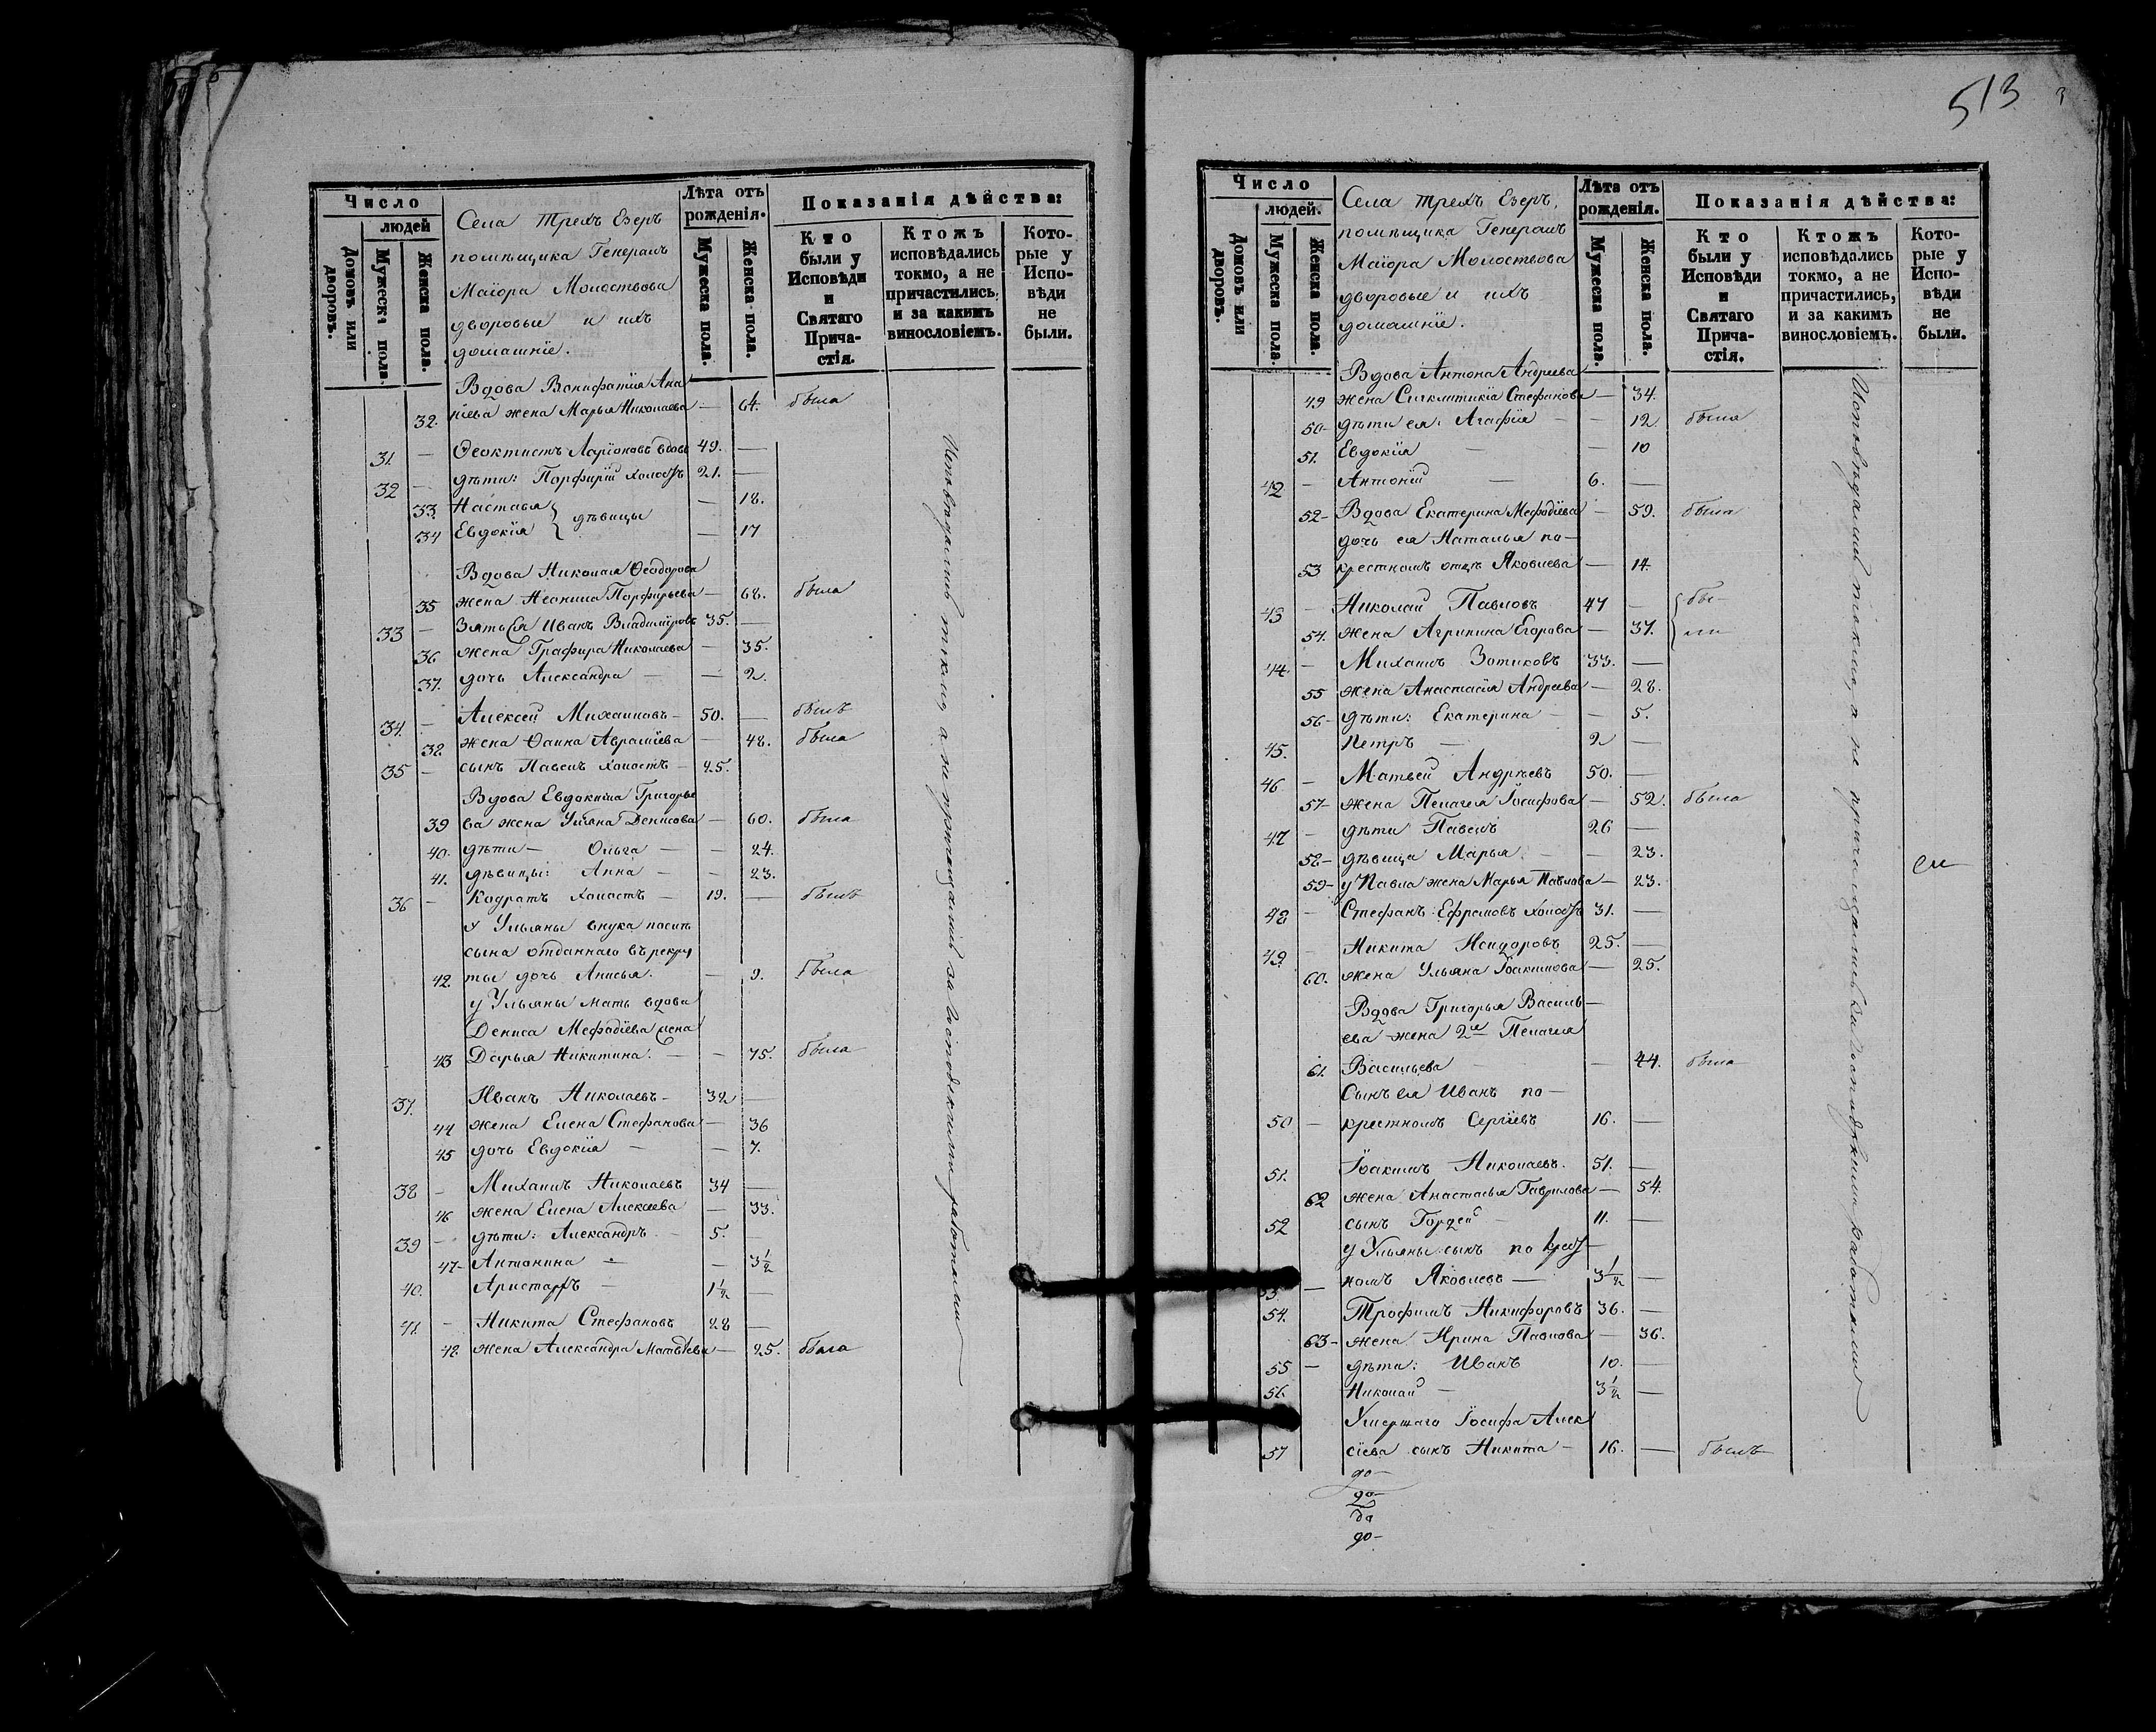 Число
людей
Домовъ или дворовъ.
Мужеска пола.
Женска пола.
Села Трехъ Езеръ
помѣщика Генералъ
Маіора Молоствова
дворовые и ихъ
домашніе.
Лѣта отъ рожденія.
Мужеска пола.
Женска пола.
Показанія дѣйства:
Кто были у Исповѣди и Святаго Причастія.
Ктожъ исповѣдались токмо, а не причастились, и за какимъ винословіемъ.
Которые у Исповѣди не были.
Вдова Вонифатія Ана
32. ніева жена Марья Николаева — 64. была
31. — Ѳеоктистъ Ларіоновъ вдовъ 49. —
32 — дѣти: Порфирій холостъ 21. —
33. Настасья — 18.
34 Евдокія } дѣвицы — 17
Вдова Николая Ѳеодорова
35 жена Неонила Порфирьева — 68. была
33 — Зять ея Иванъ Владиміровъ 35. —
36 жена Глафира Николаева — 35.
37. дочь Александра — — 2.
34. — Алексей Михаиловъ — 50. — былъ
38. жена Фаина Авраміева — 48. была
35 — сынъ Павелъ холостъ — 25.
Вдова Евдокима Григорье
39 ва жена Ульяна Денисова — 60. была
40. дѣти — Ольга — — 24.
41. дѣвицы: Анна — — 23.
36 — Кодратъ холостъ — 19. — былъ
у Ульяны внука
сына отданнаго въ рекру
42. ты дочь Анисья. — 9. была
у Ульяны мать вдова
Дениса Мефодіева жена
43 Дарья Никитина. — — 75. была
37. Иванъ Николаевъ — 32 —
44 жена Елена Стефанова — 36
45 дочь Евдокія — — 7.
38 — Михаилъ Николаевъ 34 —
46 жена Елена Алексеева — 33.
39 — дѣти: Александръ — 5. —
47 — Антонина — — 3½
40. Аристархъ — 1½ —
41. — Никита Стефановъ 28 —
48. жена Александра Матвѣева — 25. была
Исповѣдались токмо, а не причащались за Господскими работами
513
Число
людей.
Домовъ или дворовъ.
Мужеска пола.
Женска пола.
Села Трехъ Езеръ,
помѣщика Генералъ
Маіора Молоствова
дворовые и ихъ
домашніе.
Лѣта отъ рожденія.
Мужеска пола.
Женска пола.
Показанія дѣйства:
Кто были у Исповѣди и Святаго Причастія.
Ктожъ исповѣдались токмо, а не причастились, и за какимъ винословіемъ.
Которые у Исповѣди не были.
Вдова Антона Андреева
49 жена Сигклитикія Стефанова — 34.
50 — дѣти ея: Агафія — — 12 была
51. Евдокія — — 10
42 — Антоній — 6. —
52 — Вдова Екатерина Мефодіева — 59. была
дочь ея Наталья по —
53 крестномъ отцѣ Яковлева — 14.
43 — Николай Павловъ 47 — { бы —
54. жена Агрипина Егорова — 37. { ли
44. — Михаилъ Зотиковъ 33. —
55 жена Анастасія Андреева — 28.
56 — дѣти: Екатерина — — 5.
45. Петръ — 2 —
46 — Матвей Андрѣевъ 50. —
57 — жена Пелагея Іосифова — 52. была
47 — дѣти Павелъ 26 —
58 — дѣвица Марья — — 23.
59 — у Павла жена Марья Павлова — 23.
48 — Стефанъ Ефремовъ холостъ 31. —
49. — Никита Исидоровъ 25. —
60. жена Ульяна Іоакимова — 25.
Вдова Григорья Василь —
ева жена 2я Пелагея
61. Васильева — — 44. была
Сынъ ея Иванъ по —
50 — крестномъ Сергіевъ 16. —
51. Іоакимъ Николаевъ. 51. —
62 жена Анастасья Гаврилова — 54.
52 сынъ Гордей — 11. —
у Ульяны сынъ по крест —
53. — номъ Яковлевъ — 3½ —
54. Трофимъ Никифоровъ 36. —
63 — жена Ирина Павлова — 36.
55 — дѣти: Иванъ 10. —
56. Николай — 3½ —
Умершаго Іосифа Алек
57 сіева сынъ Никита — 16. — былъ
до —
до —
да
до —
Исповѣдались токмо, а не причащались за Господскими работами